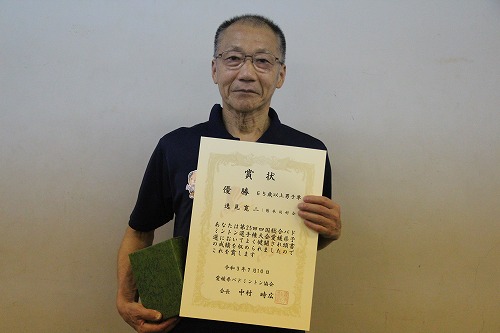 賞状
優勝 65歳以上男子単
逸見寛二
あなたは第25回四国総合バド
ミントン選手権大会愛媛県予
選において
の成績を収められました
これを賞します
令和3年7月10日
愛媛県バドミントン協会
会長 中村時広